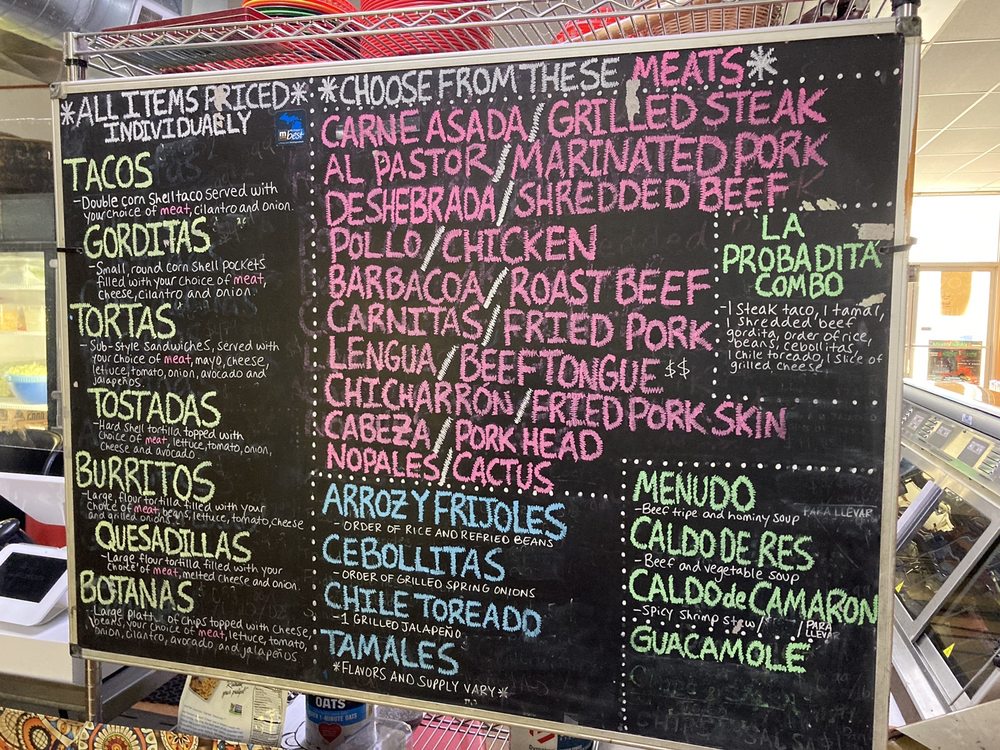 *ALL ITEMS PRICED*
INDIVIDUAELY
mbest
TACOS
-Double corn shell taco served with
your choice of meat, cilantro and onion.
GORDITAS
-Small, round corn shell pockets
filled with your choice of meat,
cheese, cilantro and onion.
TORTAS
-Sub-Style Sandwiches, served with
your choice of meat, mayo, cheese,
lettuce, tomato, onion, avocado and
jalapeños.
TOSTADAS
-Hard shell tortilla topped with
choice of meat, lettuce, tomato, onion,
cheese and avocado.
BURRITOS
-Large, flour tortilla filled with your
choice of meat, beans, lettuce, tomato, cheese
and grilled onions
QUESADILLAS
-Large flour tortilla filled with your
choice of meat, melted cheese and onion.
BOTANAS
-Large platter of chips topped with cheese,
beans, your choice of meat, lettuce, tomato,
onion, cilantro, avocado and jalapeños
*CHOOSE FROM THESE MEATS*
CARNE ASADA/GRILLED STEAK
AL PASTOR/MARINATED PORK
DESHEBRADA/SHREDDED BEEF
POLLO/CHICKEN
BARBACOA/ROAST BEEF
CARNITAS/FRIED PORK
LENGUA/BEEF TONGUE $$
CHICHARRON/FRIED PORK SKIN
CABEZA/PORK HEAD
NOPALES/CACTUS
LA
PROBADITA
COMBO
-1 Steak taco, 1 tamal,
1 shredded beef
gordita, order of rice,
beans, cebollitas,
1 chile toreado, 1 slice of
grilled cheese
ARROZ Y FRIJOLES
-ORDER OF RICE AND REFRIED BEANS
CEBOLLITAS
-ORDER OF GRILLED SPRING ONIONS
CHILE TOREADO
-1 GRILLED JALAPEÑO
TAMALES
*FLAVORS AND SUPPLY VARY*
MENUDO
-Beef tripe and hominy soup
PARA LLEVAR
CALDO DE RES
-Beef and vegetable soup
CALDO de CAMARON
-Spicy shrimp stew/
/PARA
LLEV
GUACAMOLE
OATS
1-MINUTE OATS